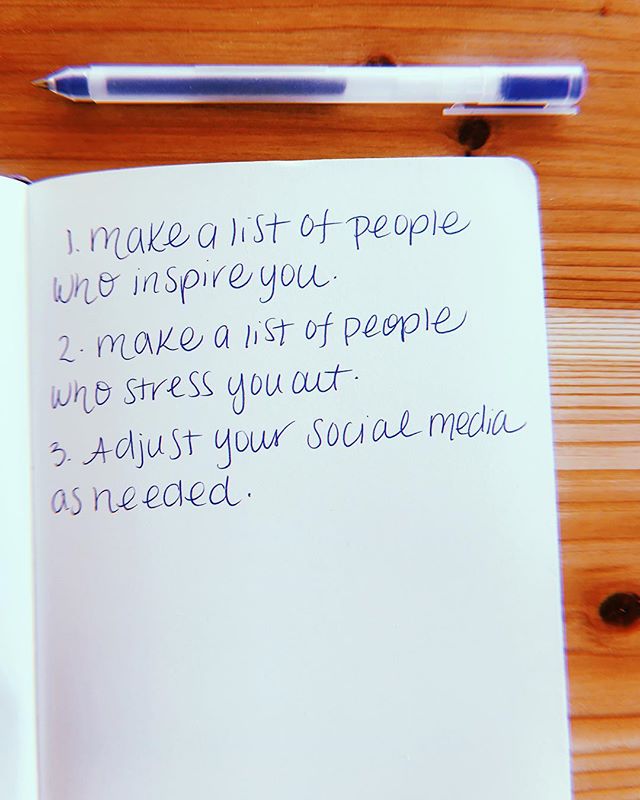 1. make a list of people
who inspire you.
2. make a list of people
who stress you out.
3. Adjust your social media
as needed.